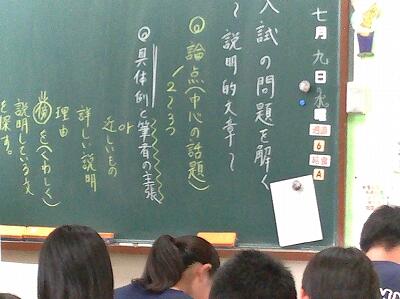 七月九日水
週道
6
給食
A
入試の問題を解く
〜説明的文章〜
◎論点(中心の話題)
2〜3つ
◎具体例と筆者の主張
or
近いもの
詳しい説明
理由
を(くわしく)
説明している文
を探す。